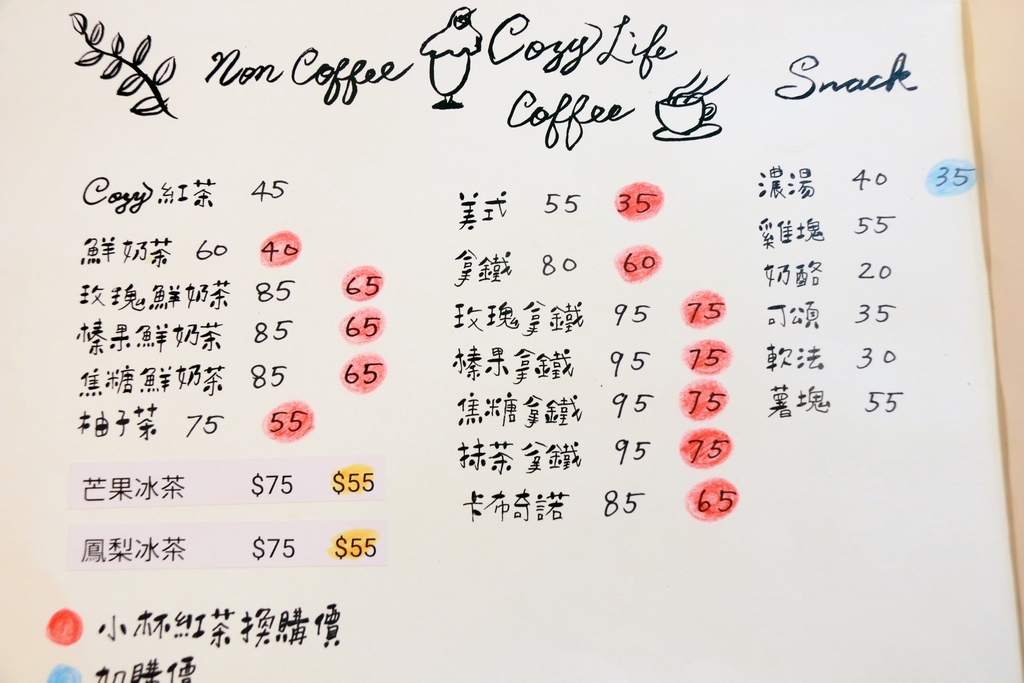 Non Coffee
Cozy Life
Coffee
Snack
Cozy 紅茶 45
鮮奶茶 60 40
玫瑰鮮奶茶 85 65
榛果鮮奶茶 85 65
焦糖鮮奶茶 85 65
柚子茶 75 55
芒果冰茶 $75 $55
鳳梨冰茶 $75 $55
小杯紅茶換購價
加購價
美式 55 35
拿鐵 80 60
玫瑰拿鐵 95 75
榛果拿鐵 95 75
焦糖拿鐵 95 75
抹茶拿鐵 95 75
卡布奇諾 85 65
濃湯 40 35
雞塊 55
奶酪 20
可頌 35
軟法 30
薯塊 55